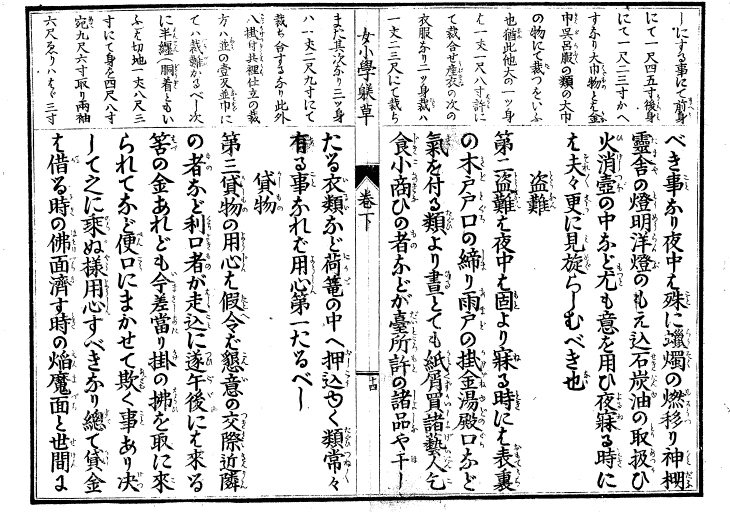 ーにする事にて前身
にて一尺四五寸後身
にて一尺二三寸かへ
すなり大巾物とは金
巾呉呂服の類の大巾
の物にて裁つをいふ
也猶此他大の一ッ身
は一丈一尺八寸許に
て裁合せ産衣の次の
衣服なり一ッ身裁ハ
一丈二三尺にて裁ち
べき事なり夜中は殊に蠟燭の燃移り神棚
靈舎の燈明洋燈のもえ込石炭油の取扱ひ
火消壺の中など尤も意を用ひ夜寐る時に
は夫々更に見旋らしむべき也
盗難
第二盗難は夜中は固より寐る時には表裏
の木戸戸口の締り雨戸の掛金湯殿口など
氣を付る類より晝とても紙屑買諸藝人乞
食小商ひの者などが臺所許の諸品や干し
女小學躾草
卷下
十四
また其次なり三ッ身
ハ一丈二尺九寸にて
裁ち合するなり此外
八掛付共裡仕立の裁
方ハ並の壹反並巾に
てハ裁難かるべし次
に半纏(胴着ともい
ふ)は切地一丈八尺三
寸にて身を四尺八寸
宛九尺六寸取り兩袖
六尺ゑりハはゞ三寸
たる衣類など荷籠の中へ押込ゆく類常々
有る事なれば用心第一たるべし
貸物
第三貸物の用心は假令ば懇意の交際近隣
の者など利口者が走込に遂午後には來る
筈の金あれども今差當り掛の拂を取に來
られてなど便口にまかせて欺く事あり决
して之に乘ぬ樣用心すべきなり總て貸金
は借る時の佛面濟す時の焔魔面と世間に